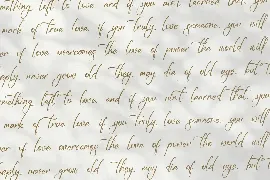 left to lose and if you not learned that you
mark of true love if you truly love someone you will
er if love overcomes the love of power the world will
eeply never grow old they may die of old age but
mething left to lose and if you not learned that you
mark of true love if you truly love someone you will
er if love overcomes the love of power the world will
eeply never grow old they may die of old age but